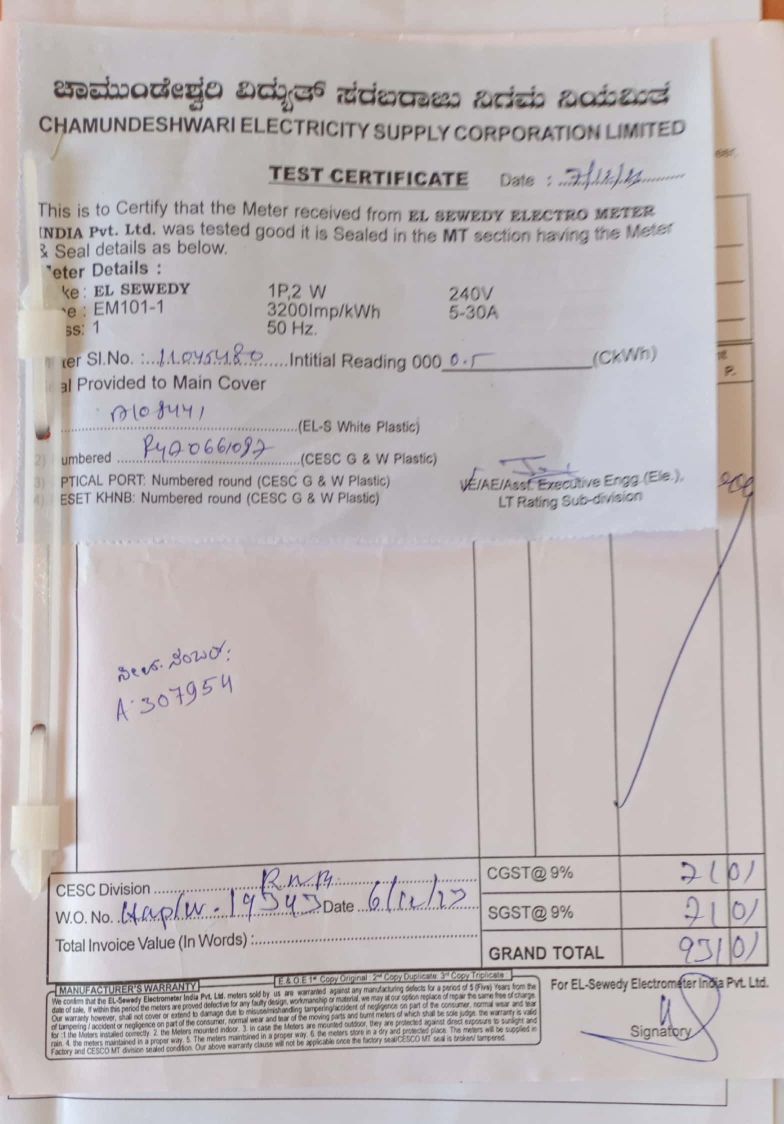 ಚಾಮುಂಡೇಶ್ವರಿ ವಿದ್ಯುತ್ ಸರಬರಾಜು ನಿಗಮ ನಿಯಮಿತ
CHAMUNDESHWARI ELECTRICITY SUPPLY CORPORATION LIMITED
TEST CERTIFICATE Date :
This is to Certify that the Meter received from EL SEWEDY ELECTRO METER
INDIA Pvt. Ltd. was tested good it is Sealed in the MT section having the Meter
& Seal details as below.
eter Details :
ke : EL SEWEDY 1P,2 W 240V
e : EM101-1 3200Imp/kWh 5-30A
ss: 1 50 Hz.
ter Sl.No. : 11045480 Intitial Reading 000 0.5 (CkWh)
al Provided to Main Cover
A108441 (EL-S White Plastic)
2) umbered (CESC G & W Plastic)
3) PTICAL PORT: Numbered round (CESC G & W Plastic)
4) ESET KHNB: Numbered round (CESC G & W Plastic)
/AE/Asst. Executive Engg.(Ele.),
LT Rating Sub-division
P.
A 307954
CESC Division
W.O. No. Date
Total Invoice Value (In Words) :
CGST@ 9% 71 01
SGST@ 9% 71 01
GRAND TOTAL 931 01
E & O.E 1st Copy Original : 2nd Copy Duplicate: 3rd Copy Triplicate
MANUFACTURER'S WARRANTY
We confirm that the EL-Sewedy Electrometer India Pvt. Ltd. meters sold by us are warranted against any manufacturing defects for a period of 5 (Five) Years from the
date of sale, If within this period the meters are proved defective for any faulty design, workmanship or material, we may at our option replace of repair the same free of charge.
Our warranty however, shall not cover or extend to damage due to misuse/mishandling tampering/accident of negligence on part of the consumer, normal wear and tear
of tampering / accident or negligence on part of the consumer, normal wear and tear of the moving parts and burnt meters of which shall be sole judge. the warranty is valid
for :1 the Meters installed correctly. 2. the Meters mounted indoor. 3. in case the Meters are mounted outdoor, they are protected against direct exposure to sunlight and
rain. 4. the meters maintained in a proper way. 5. The meters maintained in a proper way. 6. the meters store in a dry and protected place. The meters will be supplied in
Factory and CESCO MT division sealed condition. Our above warranty clause will not be applicable once the factory seal/CESCO MT seal is broken/ tampered.
For EL-Sewedy Electrometer India Pvt. Ltd.
Signatory